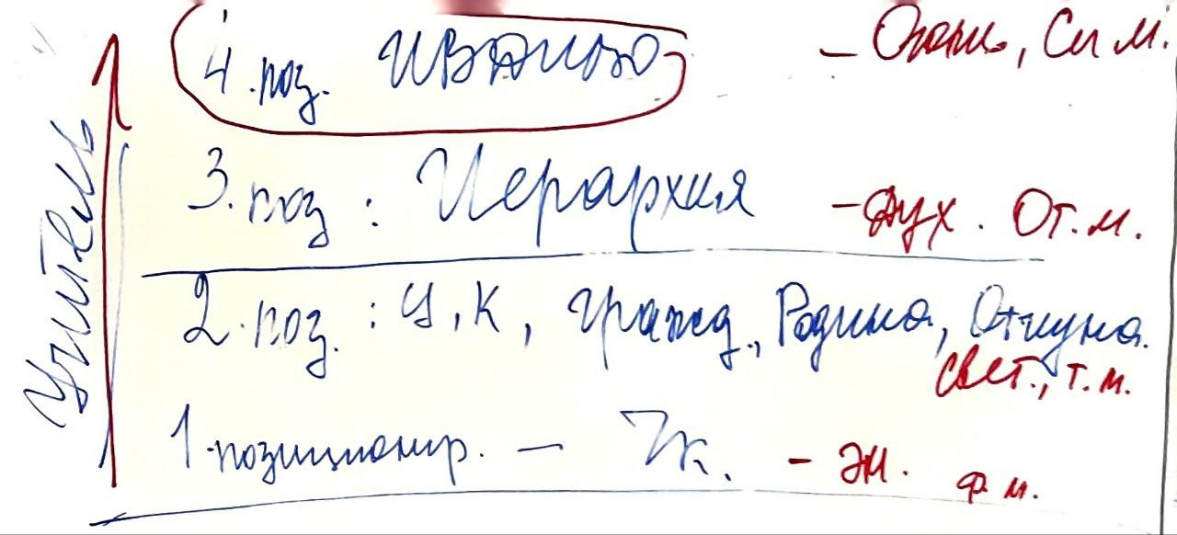 Учитель
4. поз. ИВДИВО - Огонь, Си м.
3. поз: Иерархия - Дух. От. м.
2. поз.: Ч, К, гражд., Родина, Отчизна.
Свет., т. м.
1. позиционир. - Чк. - Эн. Ф м.